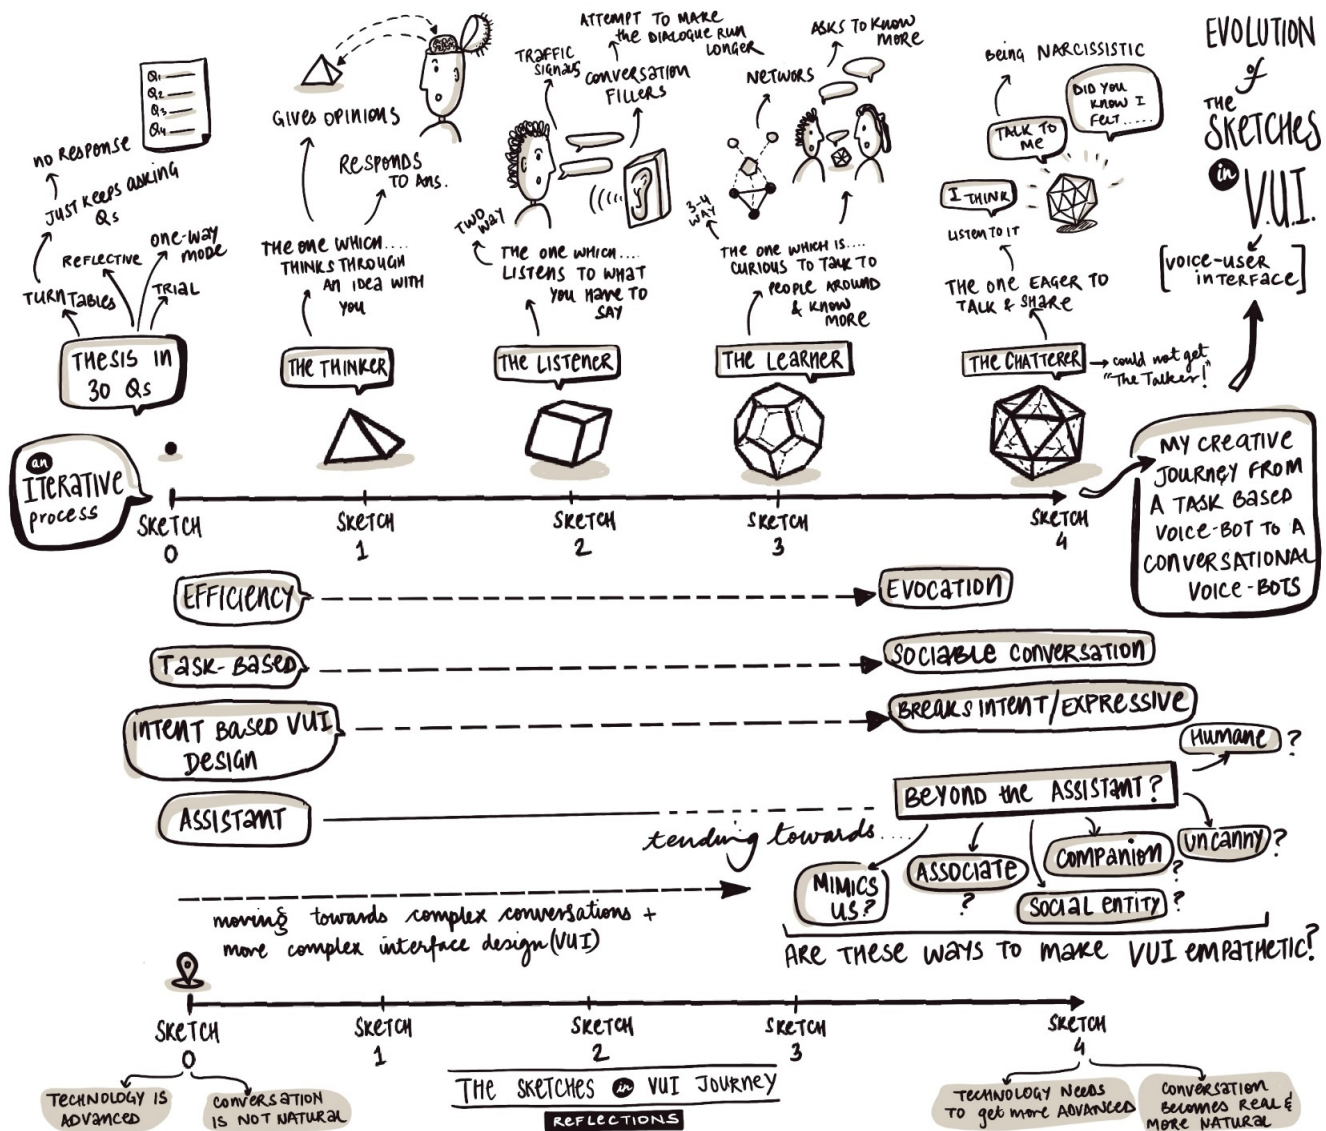 EVOLUTION
of
THE
SKETCHES
in
V.U.I.
[VOICE-USER
INTERFACE]
Q1
Q2
Q3
Q4
NO RESPONSE
JUST KEEPS ASKING
Qs
REFLECTIVE
ONE-WAY
MODE
TURN TABLES
TRIAL
THESIS IN
30 Qs
GIVES OPINIONS
RESPONDS
TO ANS.
THE ONE WHICH....
THINKS THROUGH
AN IDEA WITH
YOU
THE THINKER
ATTEMPT TO MAKE
the DIALOGUE RUN
LONGER
TRAFFIC
SIGNALS
CONVERSATION
FILLERS
TWO
WAY
THE ONE WHICH...
LISTENS TO WHAT
YOU HAVE TO
SAY
THE LISTENER
ASKS TO KNOW
MORE
NETWORS
3-4
WAY
THE ONE WHICH IS....
CURIOUS TO TALK TO
PEOPLE AROUND
& KNOW
MORE
THE LEARNER
Being NARCISSISTIC
DID YOU
KNOW I
FELT.....
TALK TO
ME
I THINK
LISTEN TO IT
THE ONE EAGER TO
TALK & SHARE
THE CHATTERER
could not get
"The Talker!"
an
ITERATIVE
PROCESS
MY CREATIVE
JOURNEY FROM
A TASK BASED
VOICE-BOT TO A
CONVERSATIONAL
VOICE-BOTS
SKETCH
0
SKETCH
1
SKETCH
2
SKETCH
3
SKETCH
4
EFFICIENCY
EVOCATION
TASK-BASED
SOCIABLE CONVERSATION
INTENT BASED VUI
DESIGN
BREAKS INTENT/EXPRESSIVE
ASSISTANT
tending towards....
BEYOND the ASSISTANT?
HUMANE?
UNCANNY?
COMPANION?
SOCIAL ENTITY?
ASSOCIATE
?
MIMICS
US?
moving towards complex conversations +
more complex interface design (VUI)
ARE THESE WAYS TO MAKE VUI EMPATHETIC?
SKETCH
0
SKETCH
1
SKETCH
2
SKETCH
3
SKETCH
4
TECHNOLOGY IS
ADVANCED
CONVERSATION
IS NOT NATURAL
THE SKETCHES in VUI JOURNEY
REFLECTIONS
TECHNOLOGY NEEDS
TO get more ADVANCED
CONVERSATION
BECOMES REAL &
MORE NATURAL